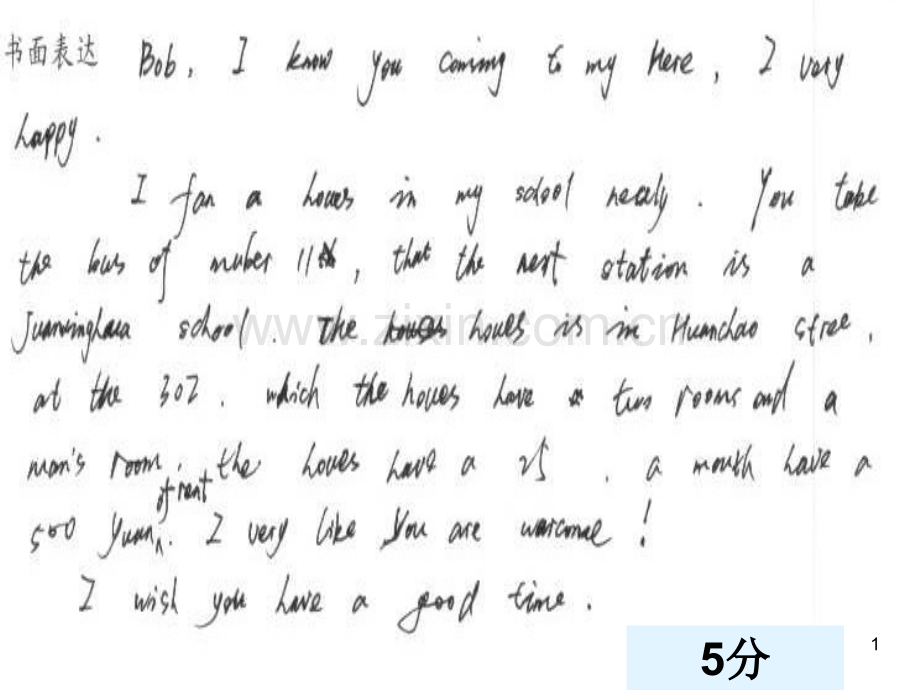 书面表达 Bob, I know you coming to my here, I very
happy.
I fan a houes in my school nearly. You take
the bus of muber 11th, that the next station is a
Juanxinghaua school. The houes is in Huanchao stree,
at the 302. which the houes have two rooms and a
man's room. the houes have a 25. a mouth have a
500 yuan of rent. I very like you are warcome!
I wish you have a good time.
www.zixin.com.cn
5分
1